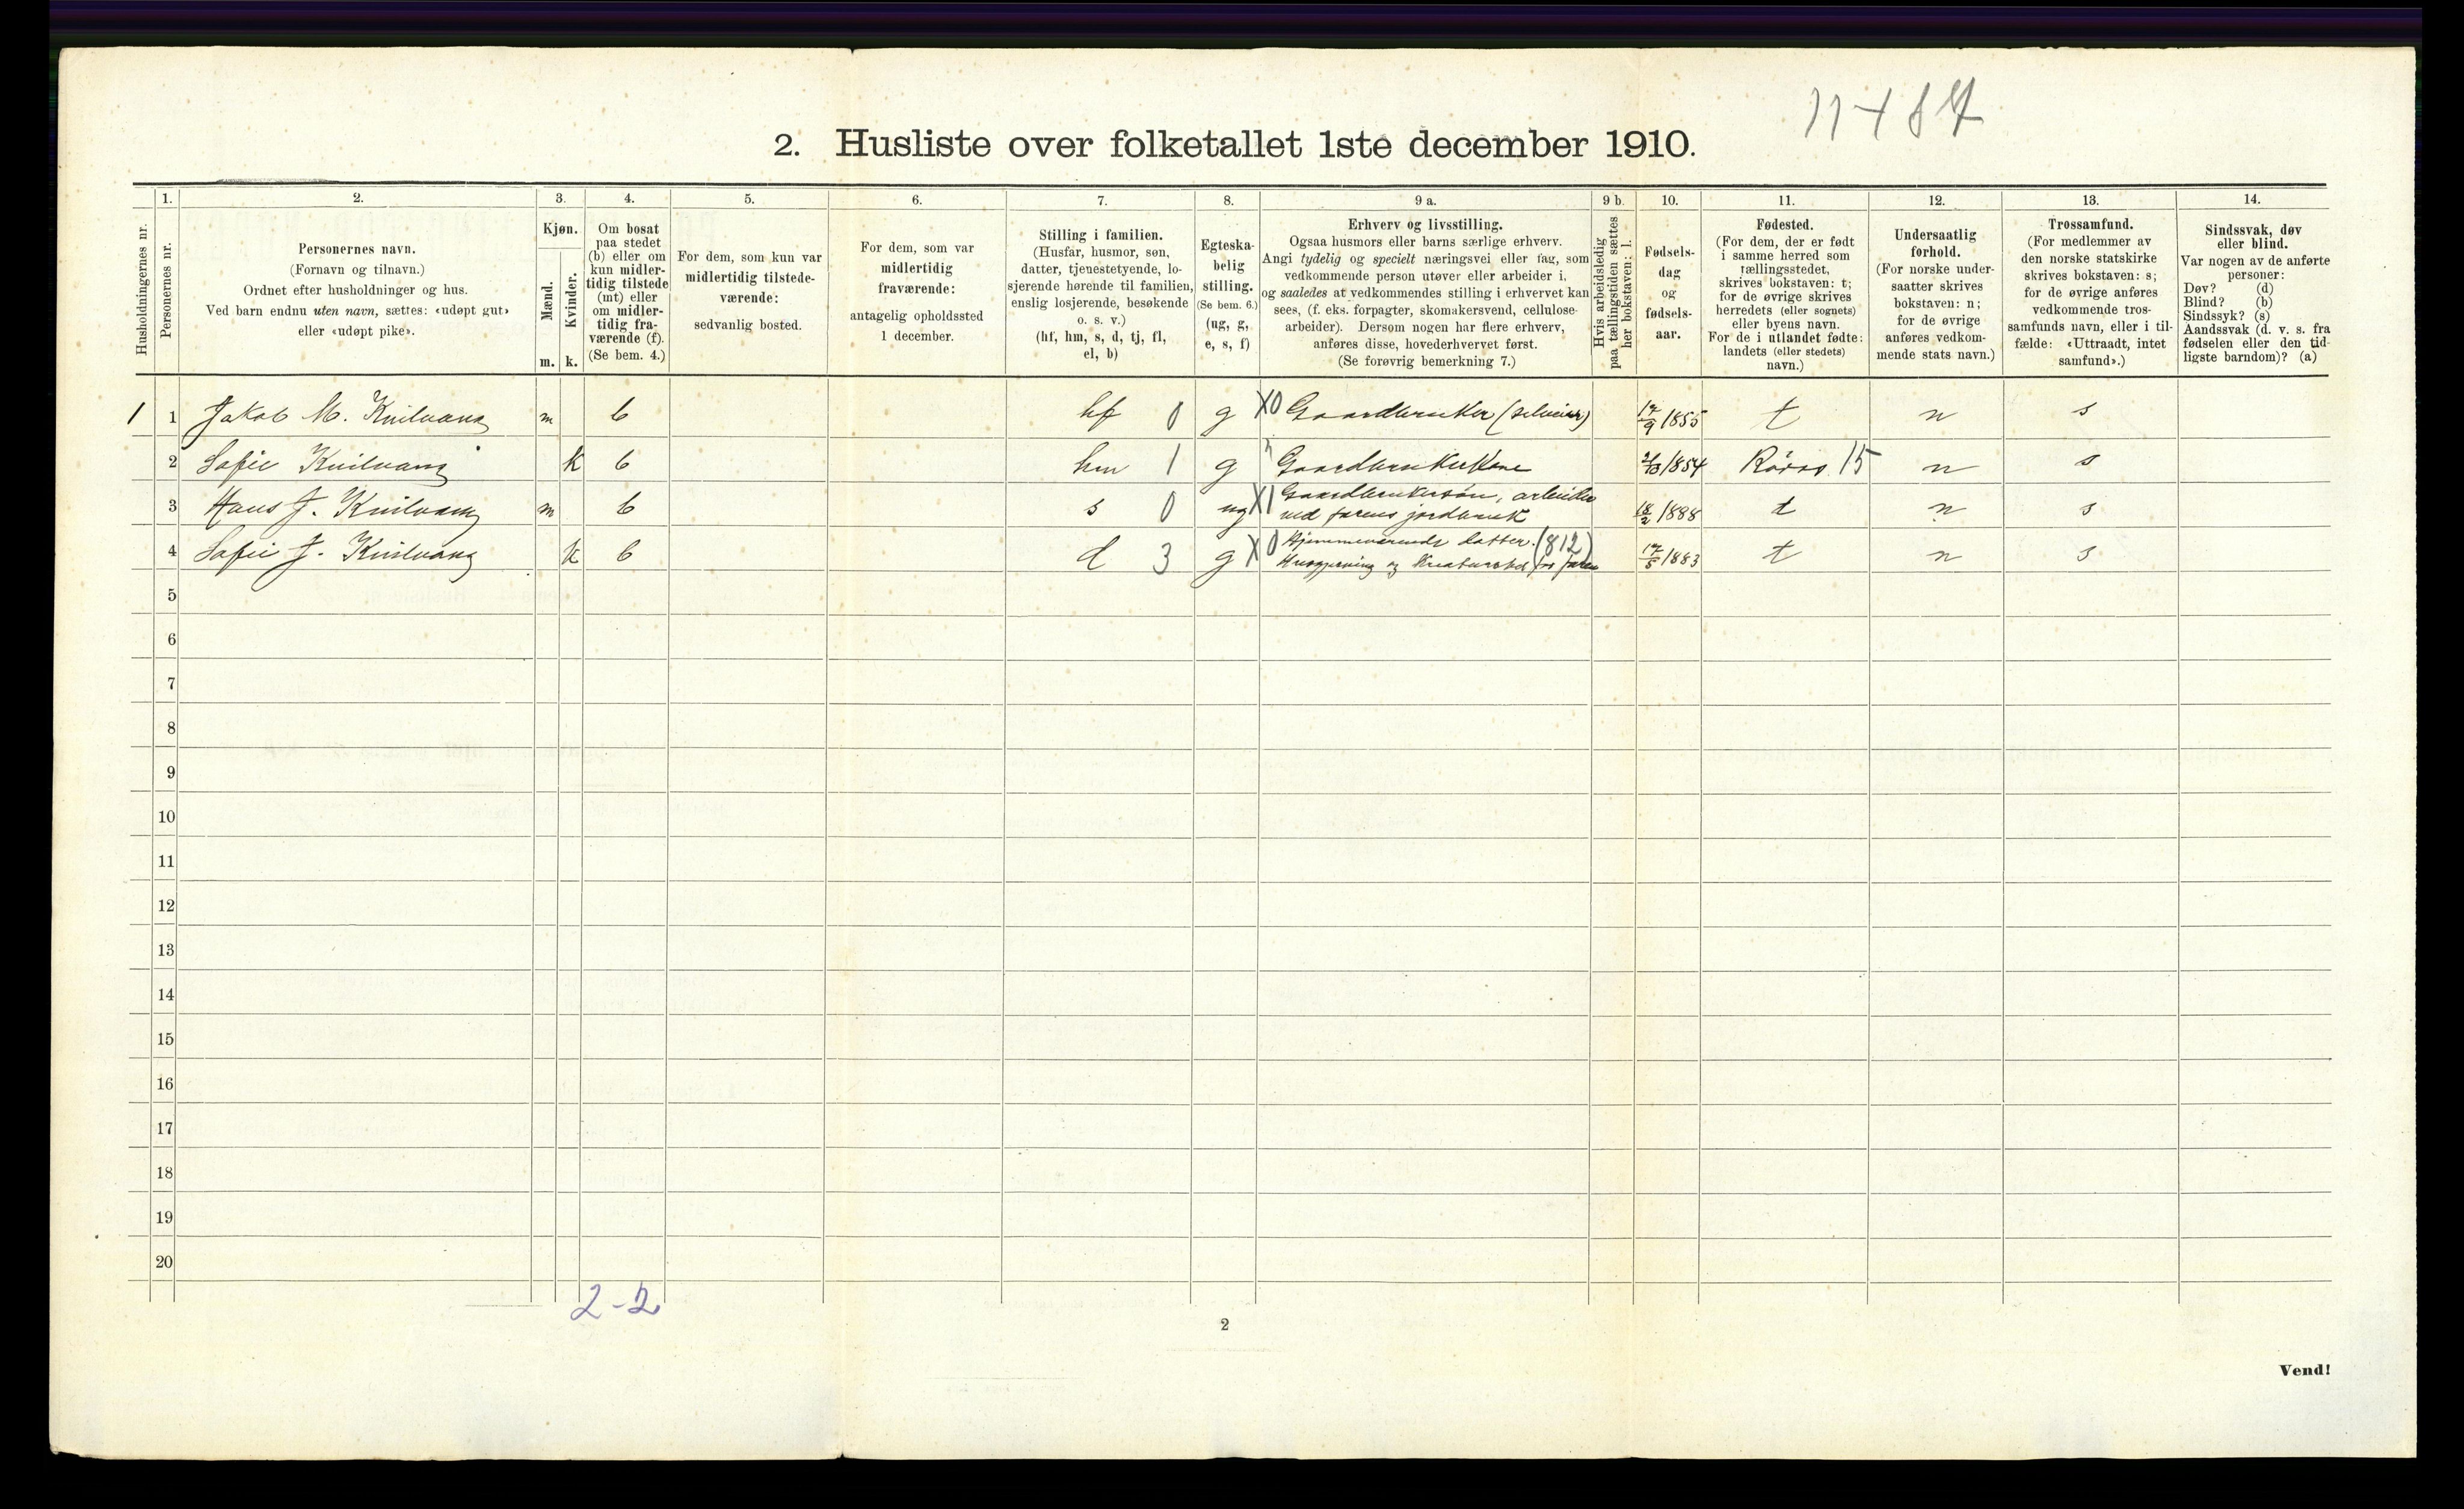 11487
2. Husliste over folketallet 1ste december 1910.
Husholdningernes nr.
1.
Personernes nr.
2.
Personernes navn.
(Fornavn og tilnavn.)
Ordnet efter husholdninger og hus.
Ved barn endnu uten navn, sættes: «udøpt gut»
eller «udøpt pike».
3.
Kjøn.
Mænd.
Kvinder.
m. k.
4.
Om bosat
paa stedet
(b) eller om
kun midler-
tidig tilstede
(mt) eller
om midler-
tidig fra-
værende (f).
(Se bem. 4.)
5.
For dem, som kun var
midlertidig tilstede-
værende:
sedvanlig bosted.
6.
For dem, som var
midlertidig
fraværende:
antagelig opholdssted
1 december.
7.
Stilling i familien.
(Husfar, husmor, søn,
datter, tjenestetyende, lo-
sjerende hørende til familien,
enslig losjerende, besøkende
o. s. v.)
(hf, hm, s, d, tj, fl,
el, b)
8.
Egteska-
belig
stilling.
(Se bem. 6.)
(ug, g,
e, s, f)
9 a.
Erhverv og livsstilling.
Ogsaa husmors eller barns særlige erhverv.
Angi tydelig og specielt næringsvei eller fag, som
vedkommende person utøver eller arbeider i,
og saaledes at vedkommendes stilling i erhvervet kan
sees, (f. eks. forpagter, skomakersvend, cellulose-
arbeider). Dersom nogen har flere erhverv,
anføres disse, hovederhvervet først.
(Se forøvrig bemerkning 7.)
9 b.
Hvis arbeidsledig
paa tællingstiden sættes
her bokstaven: l.
10.
Fødsels-
dag
og
fødsels-
aar.
11.
Fødested.
(For dem, der er født
i samme herred som
tællingsstedet,
skrives bokstaven: t;
for de øvrige skrives
herredets (eller sognets)
eller byens navn.
For de i utlandet fødte:
landets (eller stedets)
navn.)
12.
Undersaatlig
forhold.
(For norske under-
saatter skrives
bokstaven: n;
for de øvrige
anføres vedkom-
mende stats navn.)
13.
Trossamfund.
(For medlemmer av
den norske statskirke
skrives bokstaven: s;
for de øvrige anføres
vedkommende tros-
samfunds navn, eller i til-
fælde: «Uttraadt, intet
samfund».)
14.
Sindssvak, døv
eller blind.
Var nogen av de anførte
personer:
Døv? (d)
Blind? (b)
Sindssyk? (s)
Aandssvak (d. v. s. fra
fødselen eller den tid-
ligste barndom)? (a)
1 1 Jakob M. Kvilvang m b hf 0 g X0 Gaardbruker (selveier) 17/9 1855 t n s
2 Sofie Kvilvang k b hm 1 g " Gaardbrukerkone 1854 Røros 15 n s
3 Hans J. Kvilvang m b s 0 ug X1 Gaardbrukersøn, arbeider
ved farens jordbruk 18/2 1888 t n s
4 Sofie J. Kvilvang k b d 3 g X0 Hjemmeværende datter. (812)
Husgjerning og Kreaturstel for faren 17/5 1883 t n s
5
6
7
8
9
10
11
12
13
14
15
16
17
18
19
20
2-2
2
Vend!